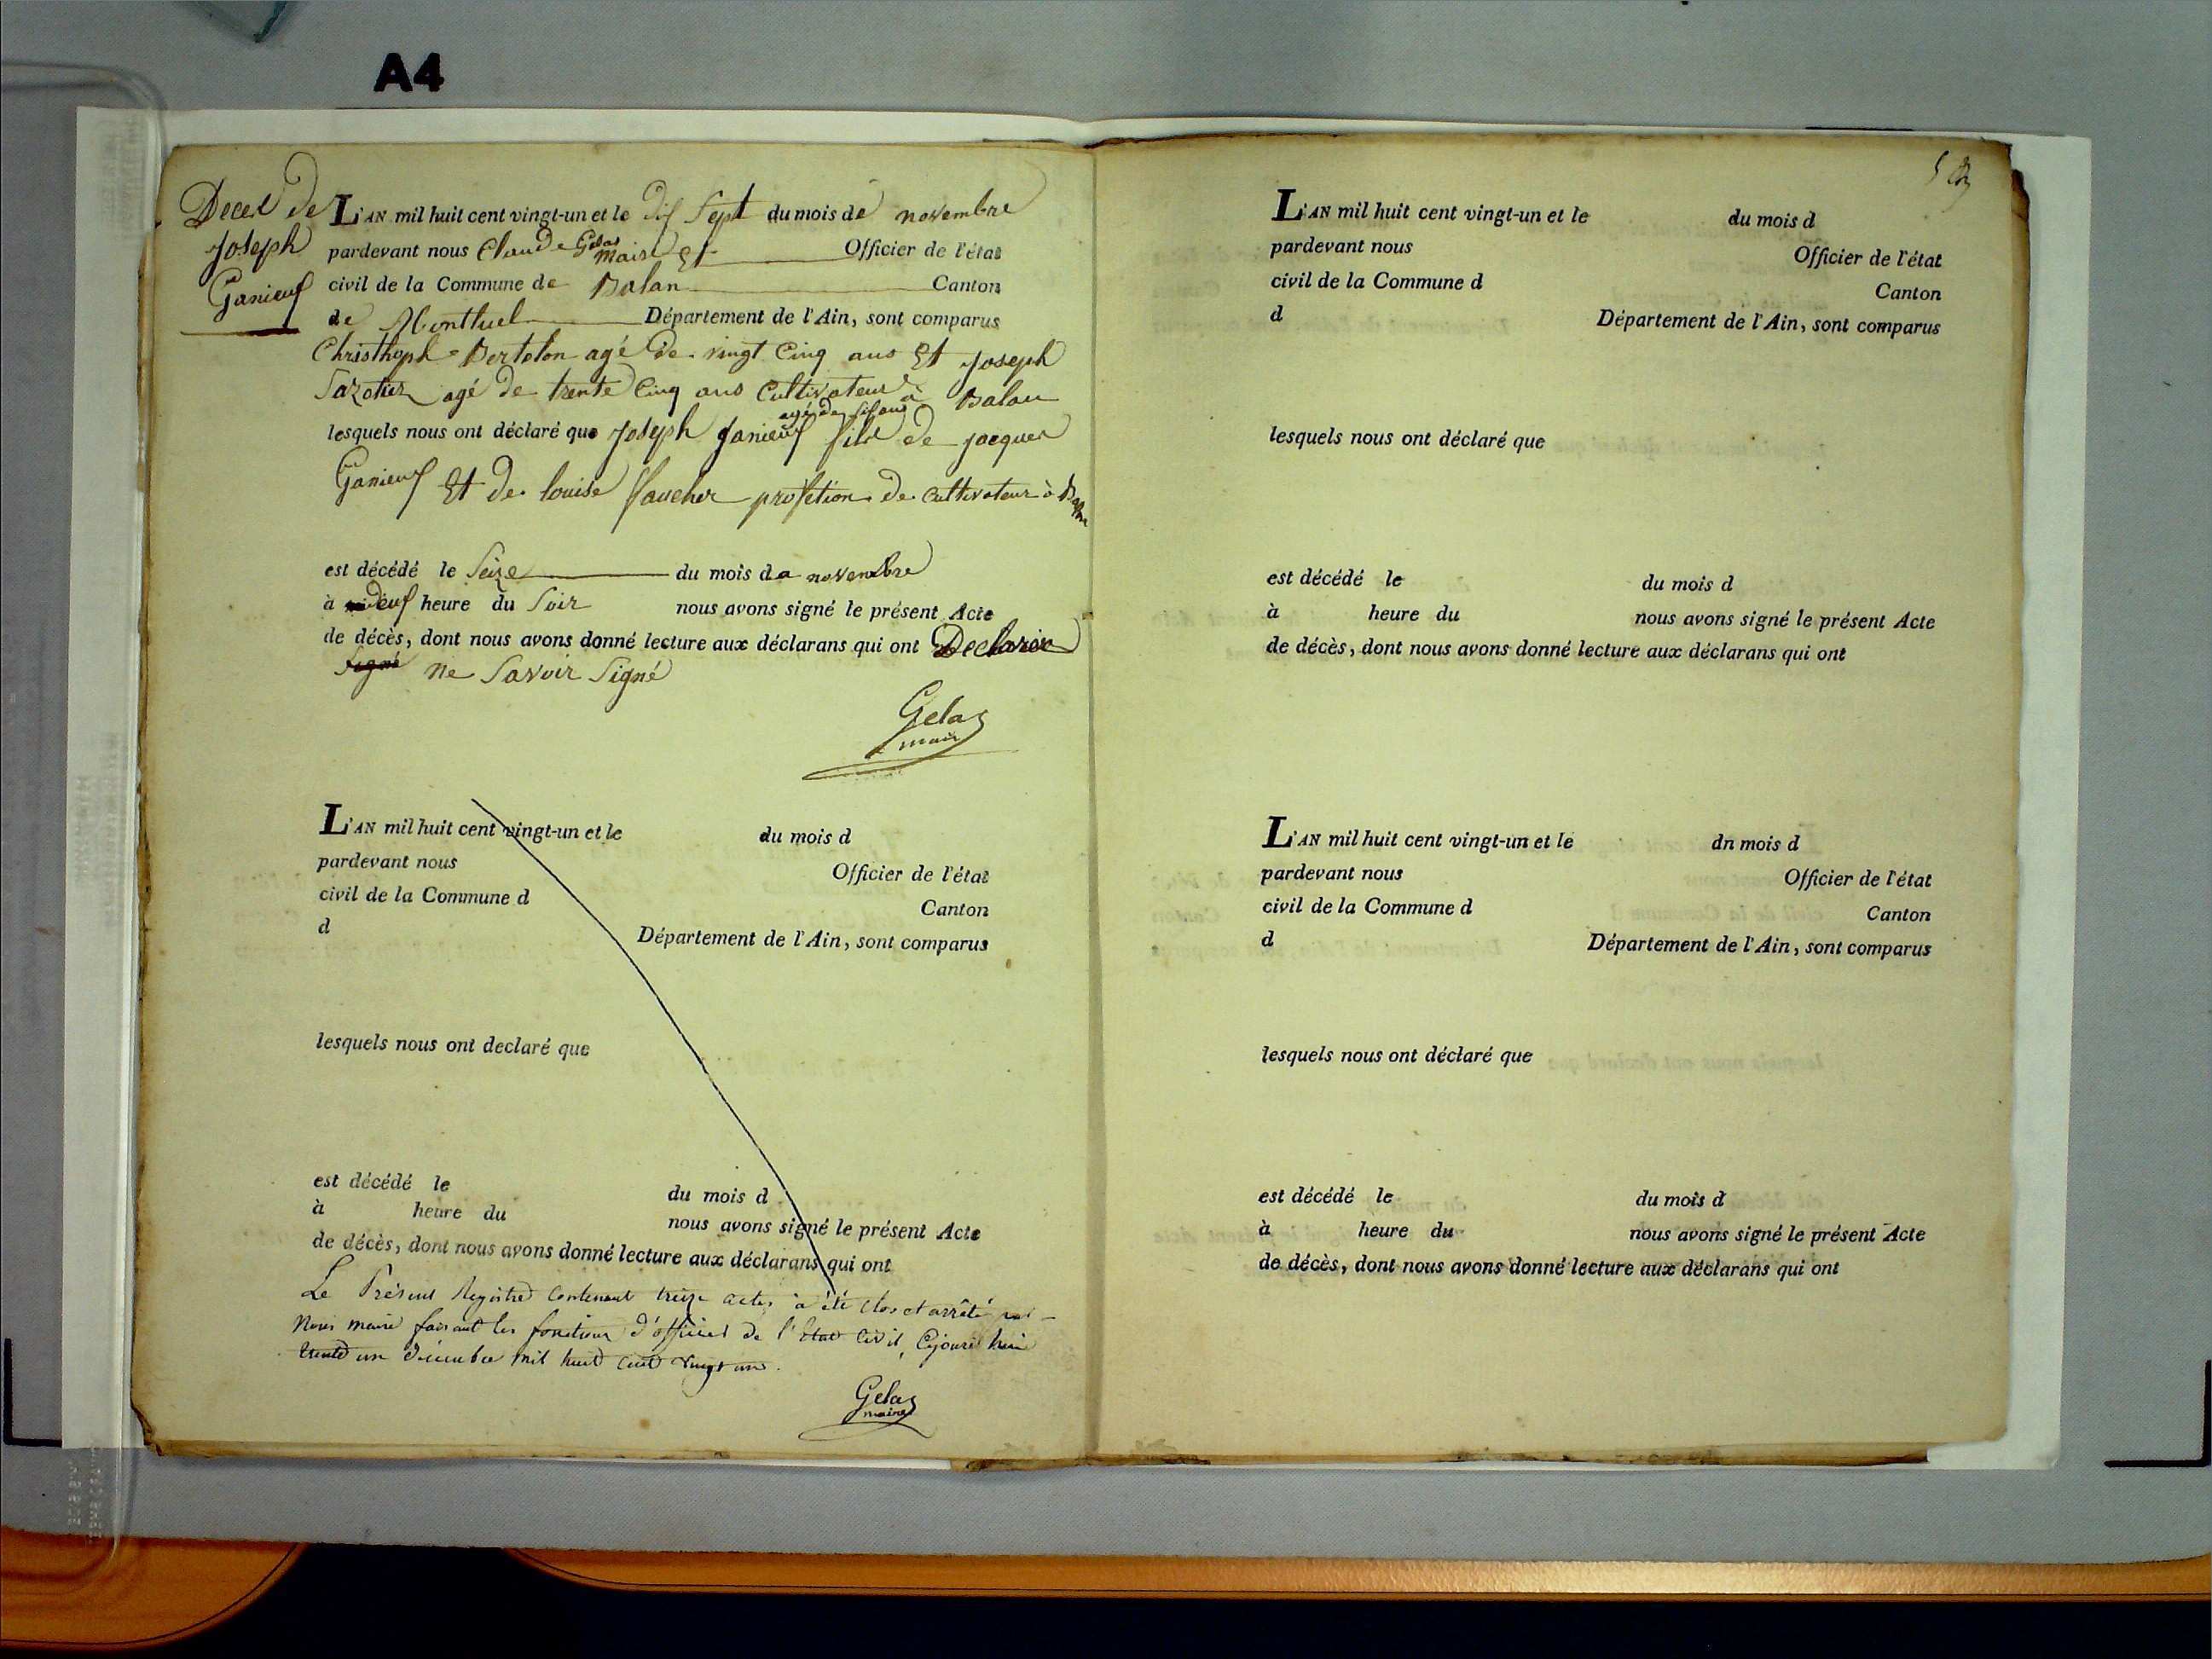 A4
Deces de
Joseph
Ganieuf
L'AN mil huit cent vingt-un et le dif Sept du mois de novembre
pardevant nous Claude Gelas maire Et Officier de l'état
civil de la Commune de Balan Canton
de Montluel Département de l'Ain, sont comparus
Christhoph Bertolon agé de vingt Cinq ans Et Joseph
agé de trente Cinq ans Cultivateur à Balan
agé de
lesquels nous ont déclaré que Joseph Ganieuf fils de jacques
Ganieuf Et de louise faucher profetion de Cultivateur à
est décédé le Seize du mois de novembre
à neuf heure du Soir nous avons signé le présent Acte
de décès, dont nous avons donné lecture aux déclarans qui ont Declarer
Signé ne Savoir Signé
Gelas
maire
L'AN mil huit cent vingt-un et le du mois d
pardevant nous Officier de l'état
civil de la Commune d Canton
d Département de l'Ain, sont comparus
lesquels nous ont declaré que
est décédé le du mois d
à heure du nous avons signé le présent Acte
de décès, dont nous avons donné lecture aux déclarans qui ont
Le Présent Registre Contenant treize actes a été clos et arrêté par
Nous maire faisant les fonctions d'officier de l'état civil, Cejourd'hui
trente un décembre mil huit cent vingt un.
Gelas
maire
L'AN mil huit cent vingt-un et le du mois d
pardevant nous Officier de l'état
civil de la Commune d Canton
d Département de l'Ain, sont comparus
lesquels nous ont déclaré que
est décédé le du mois d
à heure du nous avons signé le présent Acte
de décès, dont nous avons donné lecture aux déclarans qui ont
L'AN mil huit cent vingt-un et le dn mois d
pardevant nous Officier de l'état
civil de la Commune d Canton
d Département de l'Ain, sont comparus
lesquels nous ont déclaré que
est décédé le du mois d
à heure du nous avons signé le présent Acte
de décès, dont nous avons donné lecture aux déclarans qui ont